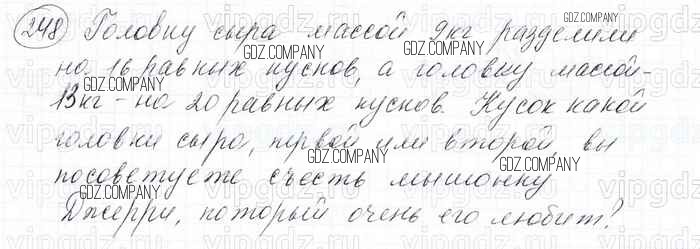 248 Головку сыра массой 9кг разделили
на 16 равных кусков, а головку массой
13кг - на 20 равных кусков. Кусок какой
головки сыра, первой или второй вы
посоветуете съесть мышонку
Джерри, который очень его любит?
GDZ.COMPANY
GDZ.COMPANY
GDZ.COMPANY
GDZ.COMPANY
GDZ.COMPANY
GDZ.COMPANY
GDZ.COMPANY